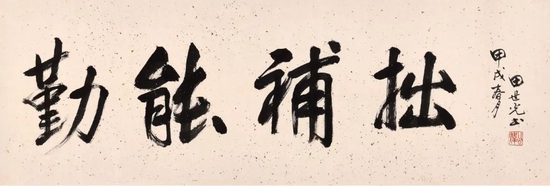 勤能補拙
甲戌春月
田世光书